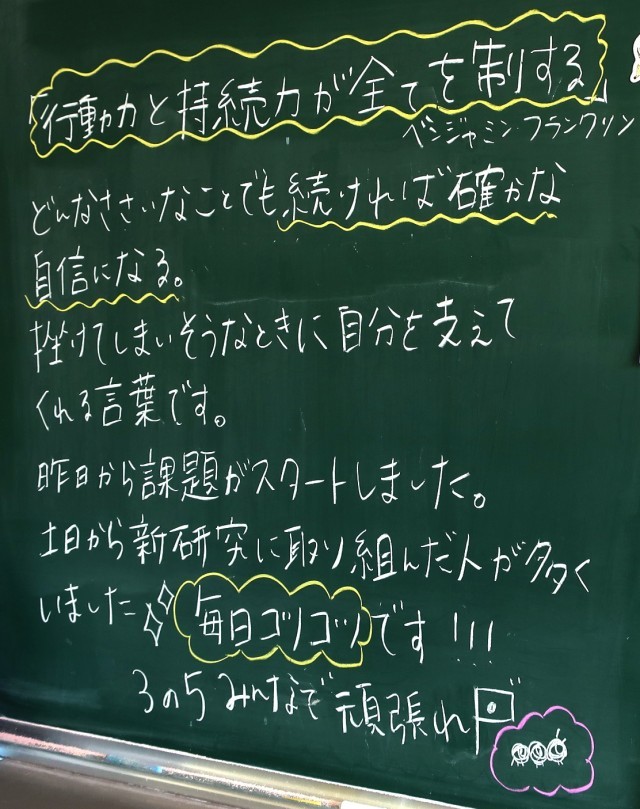 「行動力と持続力が全てを制する」
ベンジャミン・フランクリン
どんなささいなことでも続ければ確かな
自信になる。
挫けてしまいそうなときに自分を支えて
くれる言葉です。
昨日から課題がスタートしました。
土日から新研究に取り組んだ人が多く
いました
毎日コツコツです!!!
3の5みんなで頑張れ